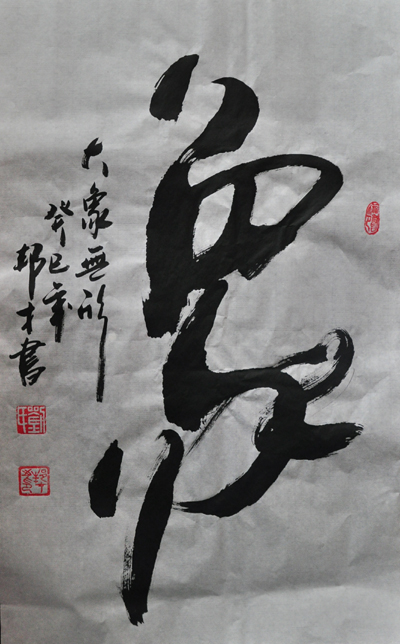 象
大象無形
癸巳年
邦才書